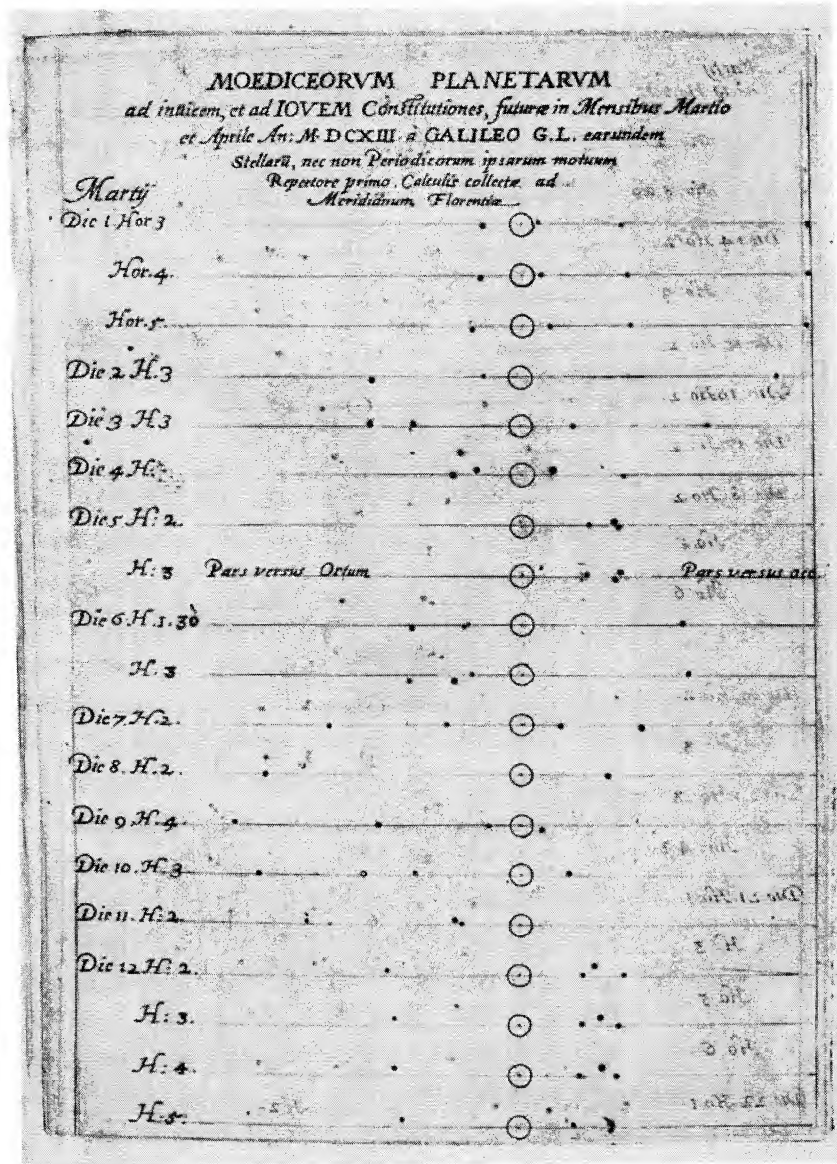 MOEDICEORVM PLANETARVM
ad inuicem, et ad IOVEM Constitutiones, futuræ in Mensibus Martio
et Aprile An: M DCXIII à GALILEO G.L. earundem
Stellarũ, nec non Periodicorum ipsarum motuum
Repertore primo. Calculis collectæ ad
Meridianum Florentiæ
Martij
Die 1 Hor 3
Hor. 4.
Hor. 5.
Die 2 H. 3
Die 3 H 3
Die 4 H.
Die 5 H: 2.
H: 3 Pars versus Ortum Pars versus occ.
Die 6. H. 1. 30
H. 3
Die 7. H. 2.
Die 8. H. 2.
Die 9. H. 4.
Die 10. H. 3
Die 11. H: 2.
Die 12. H: 2.
H: 3.
H: 4.
H. 5.